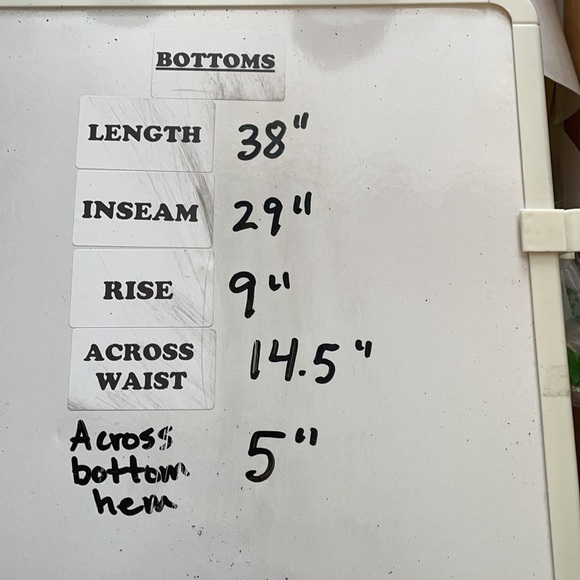 BOTTOMS
LENGTH 38"
INSEAM 29"
RISE 9"
ACROSS
WAIST 14.5"
Across
bottom 5"
hem